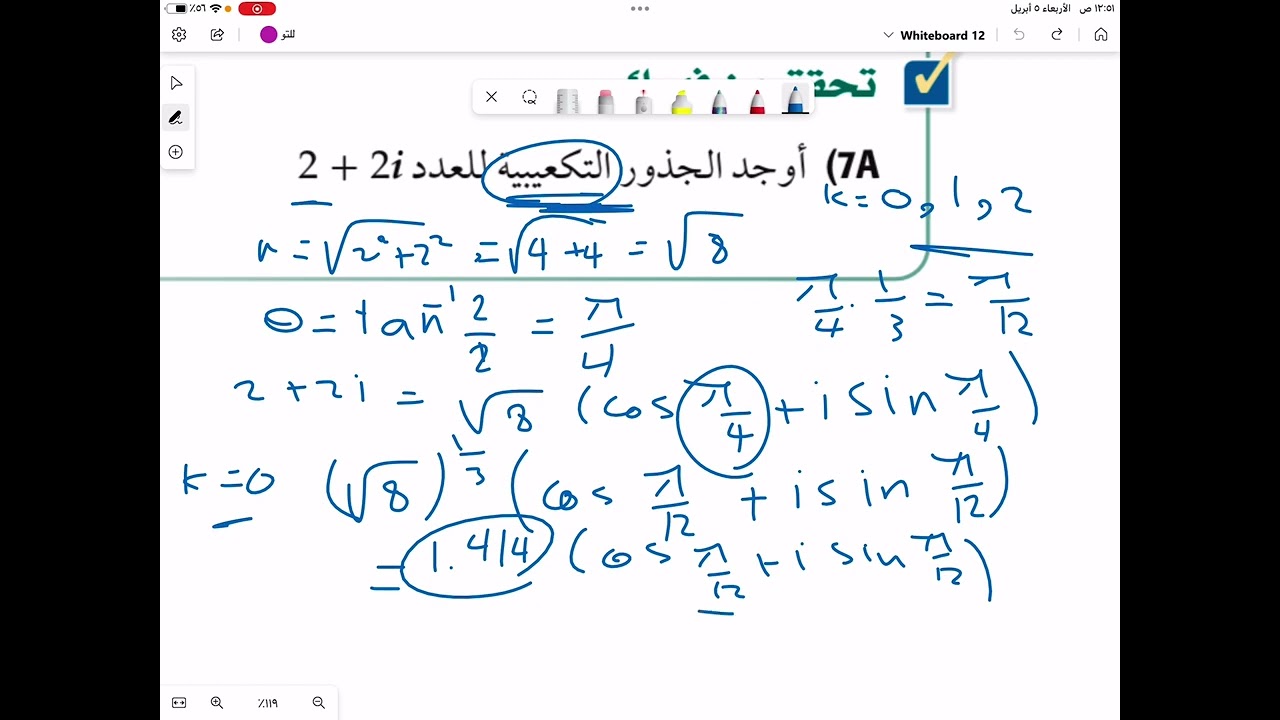 ١٢:٥١ ص الأربعاء ٥ أبريل
٥٦٪
Whiteboard 12
للتو
تحقق من فهمك
7A) أوجد الجذور التكعيبية للعدد 2 + 2i
k = 0, 1, 2
r = √2² + 2² = √4 + 4 = √8
θ = tan⁻¹ 2/2 = π/4
π/4 . 1/3 = π/12
2 + 2i = √8 (cos π/4 + i sin π/4)
k = 0 (√8)^1/3 (cos π/12 + i sin π/12)
= 1.414 (cos π/12 + i sin π/12)
١١٩٪